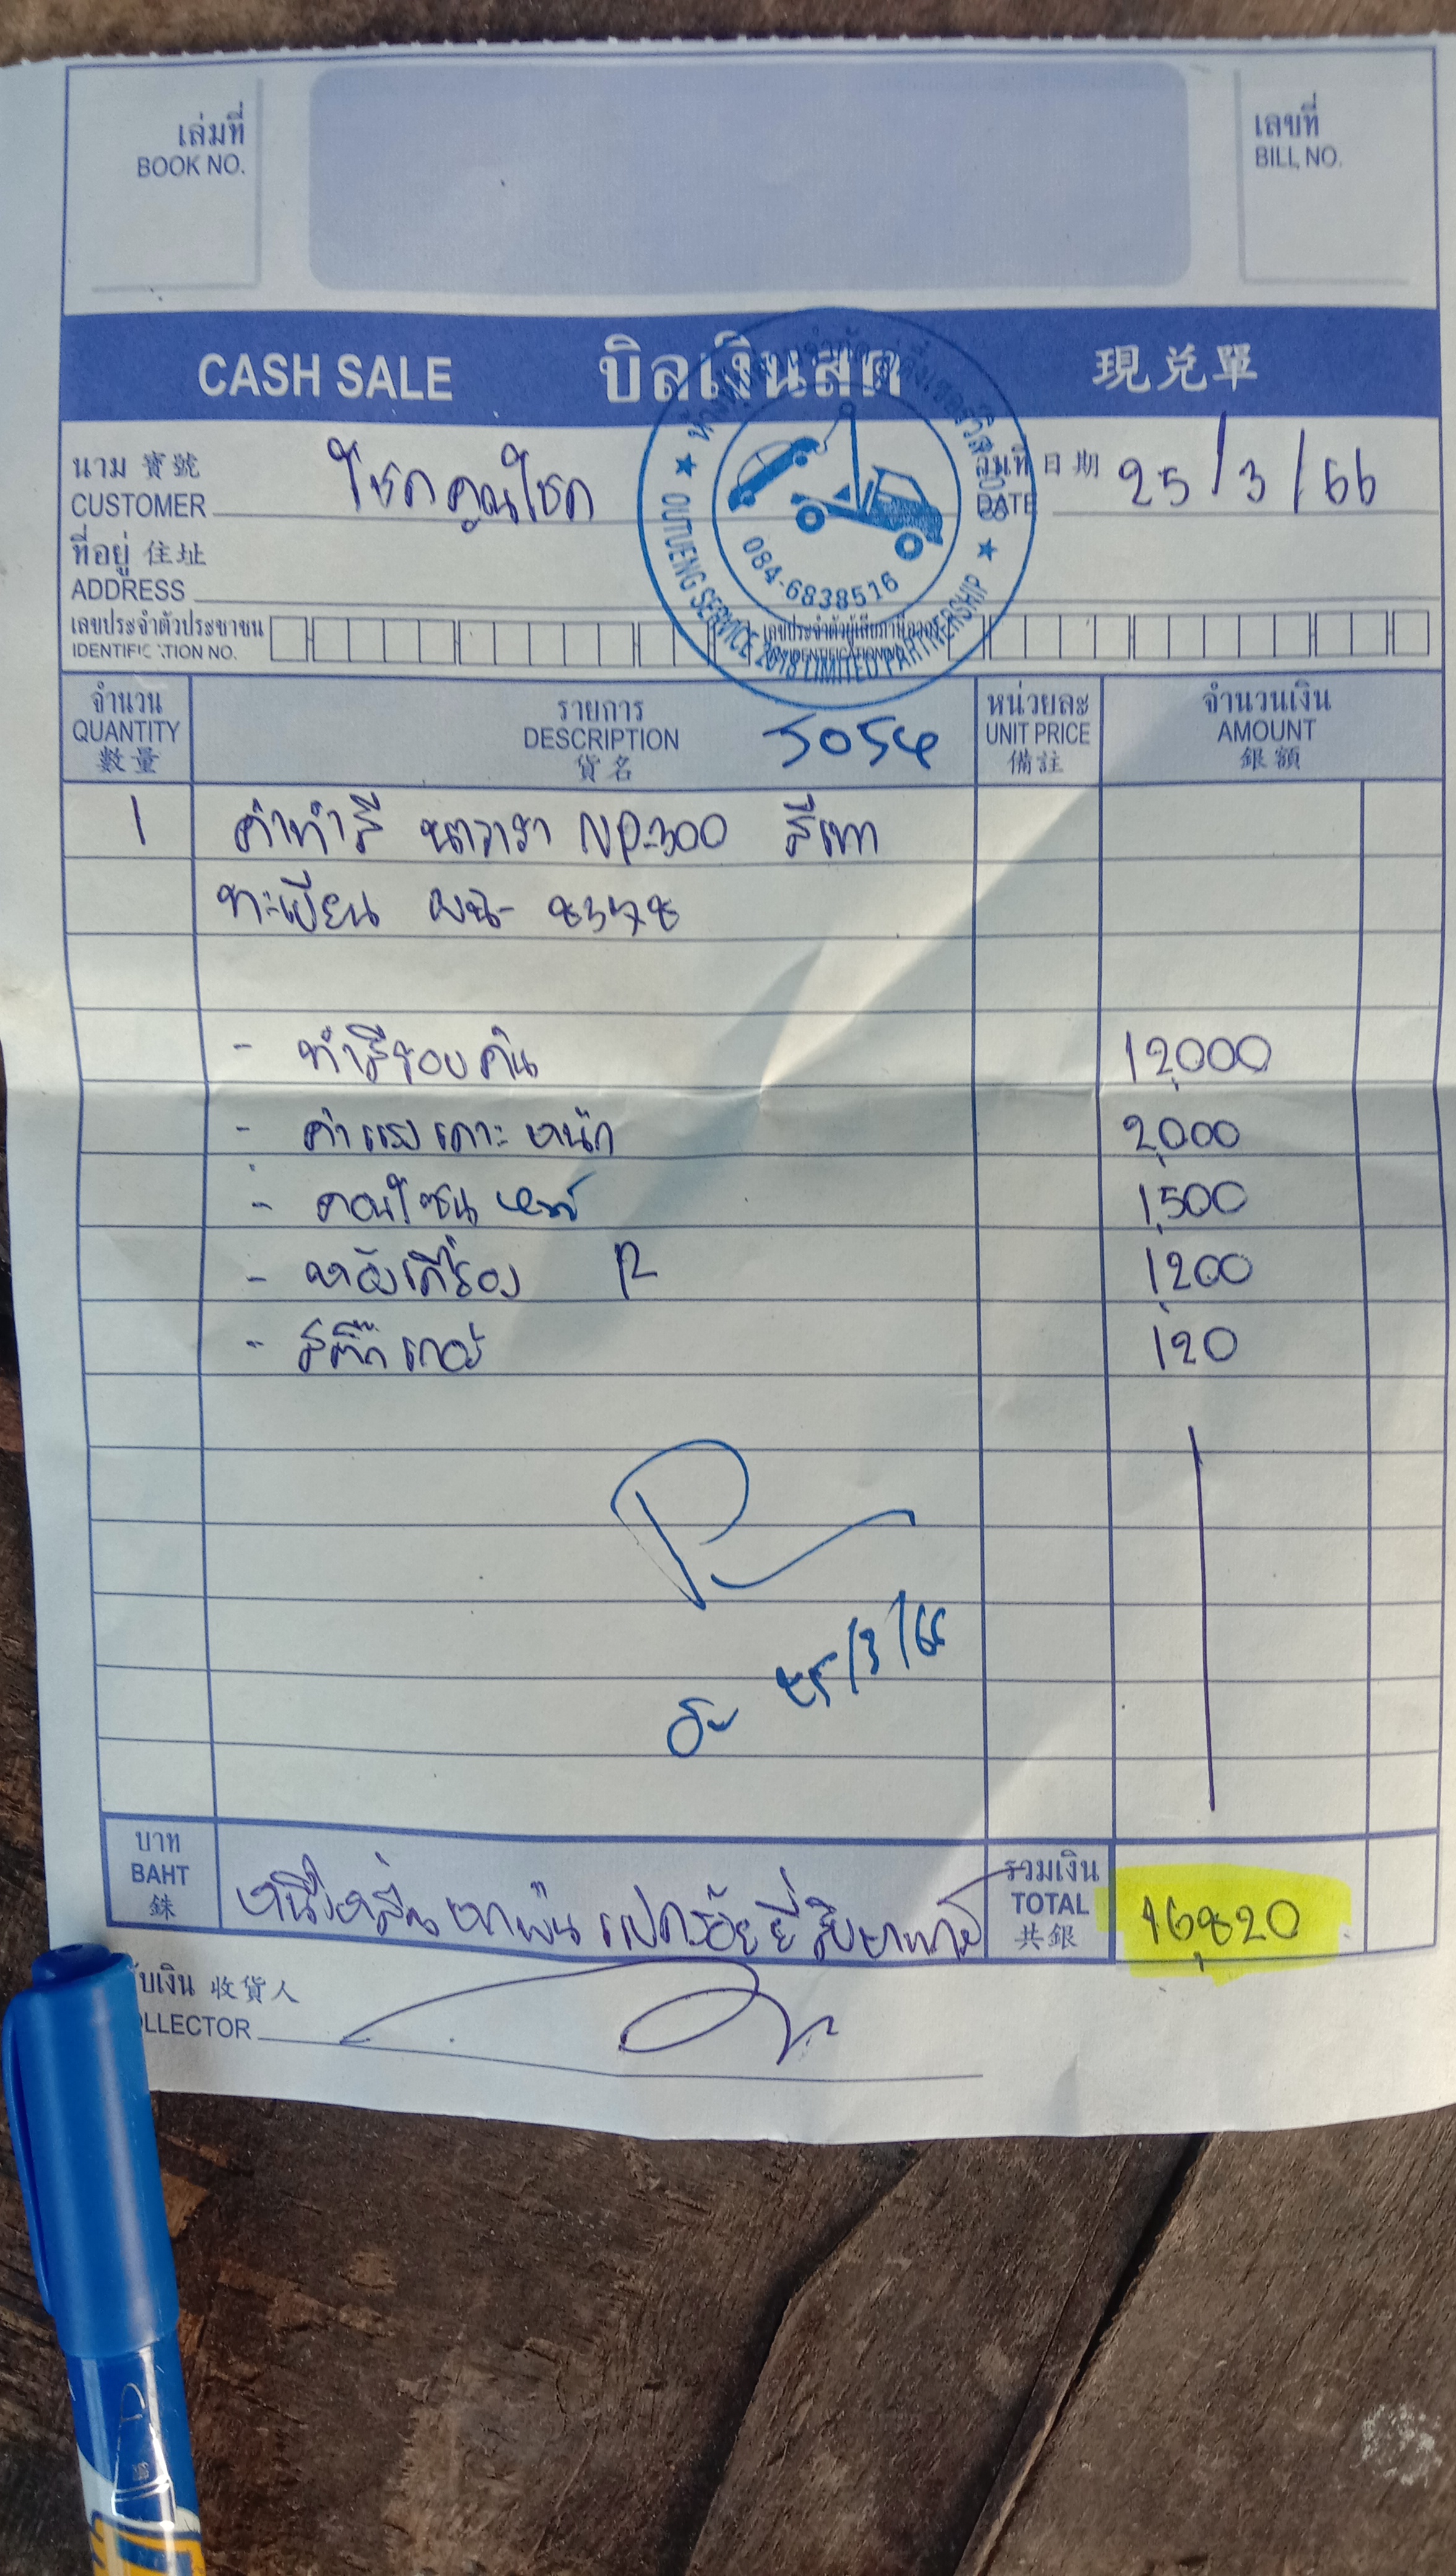 เล่มที่
BOOK NO.
เลขที่
BILL NO.
CASH SALE บิลเงินสด 現兌單
นาม 寶號
CUSTOMER โชคคูณโชค
วันที่ 日期
DATE 25/3/66
ที่อยู่ 住址
ADDRESS
เลขประจำตัวประชาชน
IDENTIFICATION NO.
เลขประจำตัวผู้เสียภาษีอากร
084-6838516
OUTUENG SERVICE 2018 LIMITED PARTNERSHIP
จำนวน
QUANTITY
數量
รายการ
DESCRIPTION
貨名
หน่วยละ
UNIT PRICE
備註
จำนวนเงิน
AMOUNT
銀額
1 ค่าทำสี นาวารา NP-300 สีเทา
ทะเบียน 8378
- ทำสีรอบคัน 12,000
- ค่าแรงเคาะหนัก 2,000
- คอนโซน 1,500
- หลังเครื่อง 1,200
- สติ๊กเกอร์ 120
25/3/66
บาท
BAHT
銖
หนึ่งหมื่นหกพันแปดร้อยยี่สิบบาทถ้วน
รวมเงิน
TOTAL
共銀
16,820
รับเงิน 收貨人
COLLECTOR